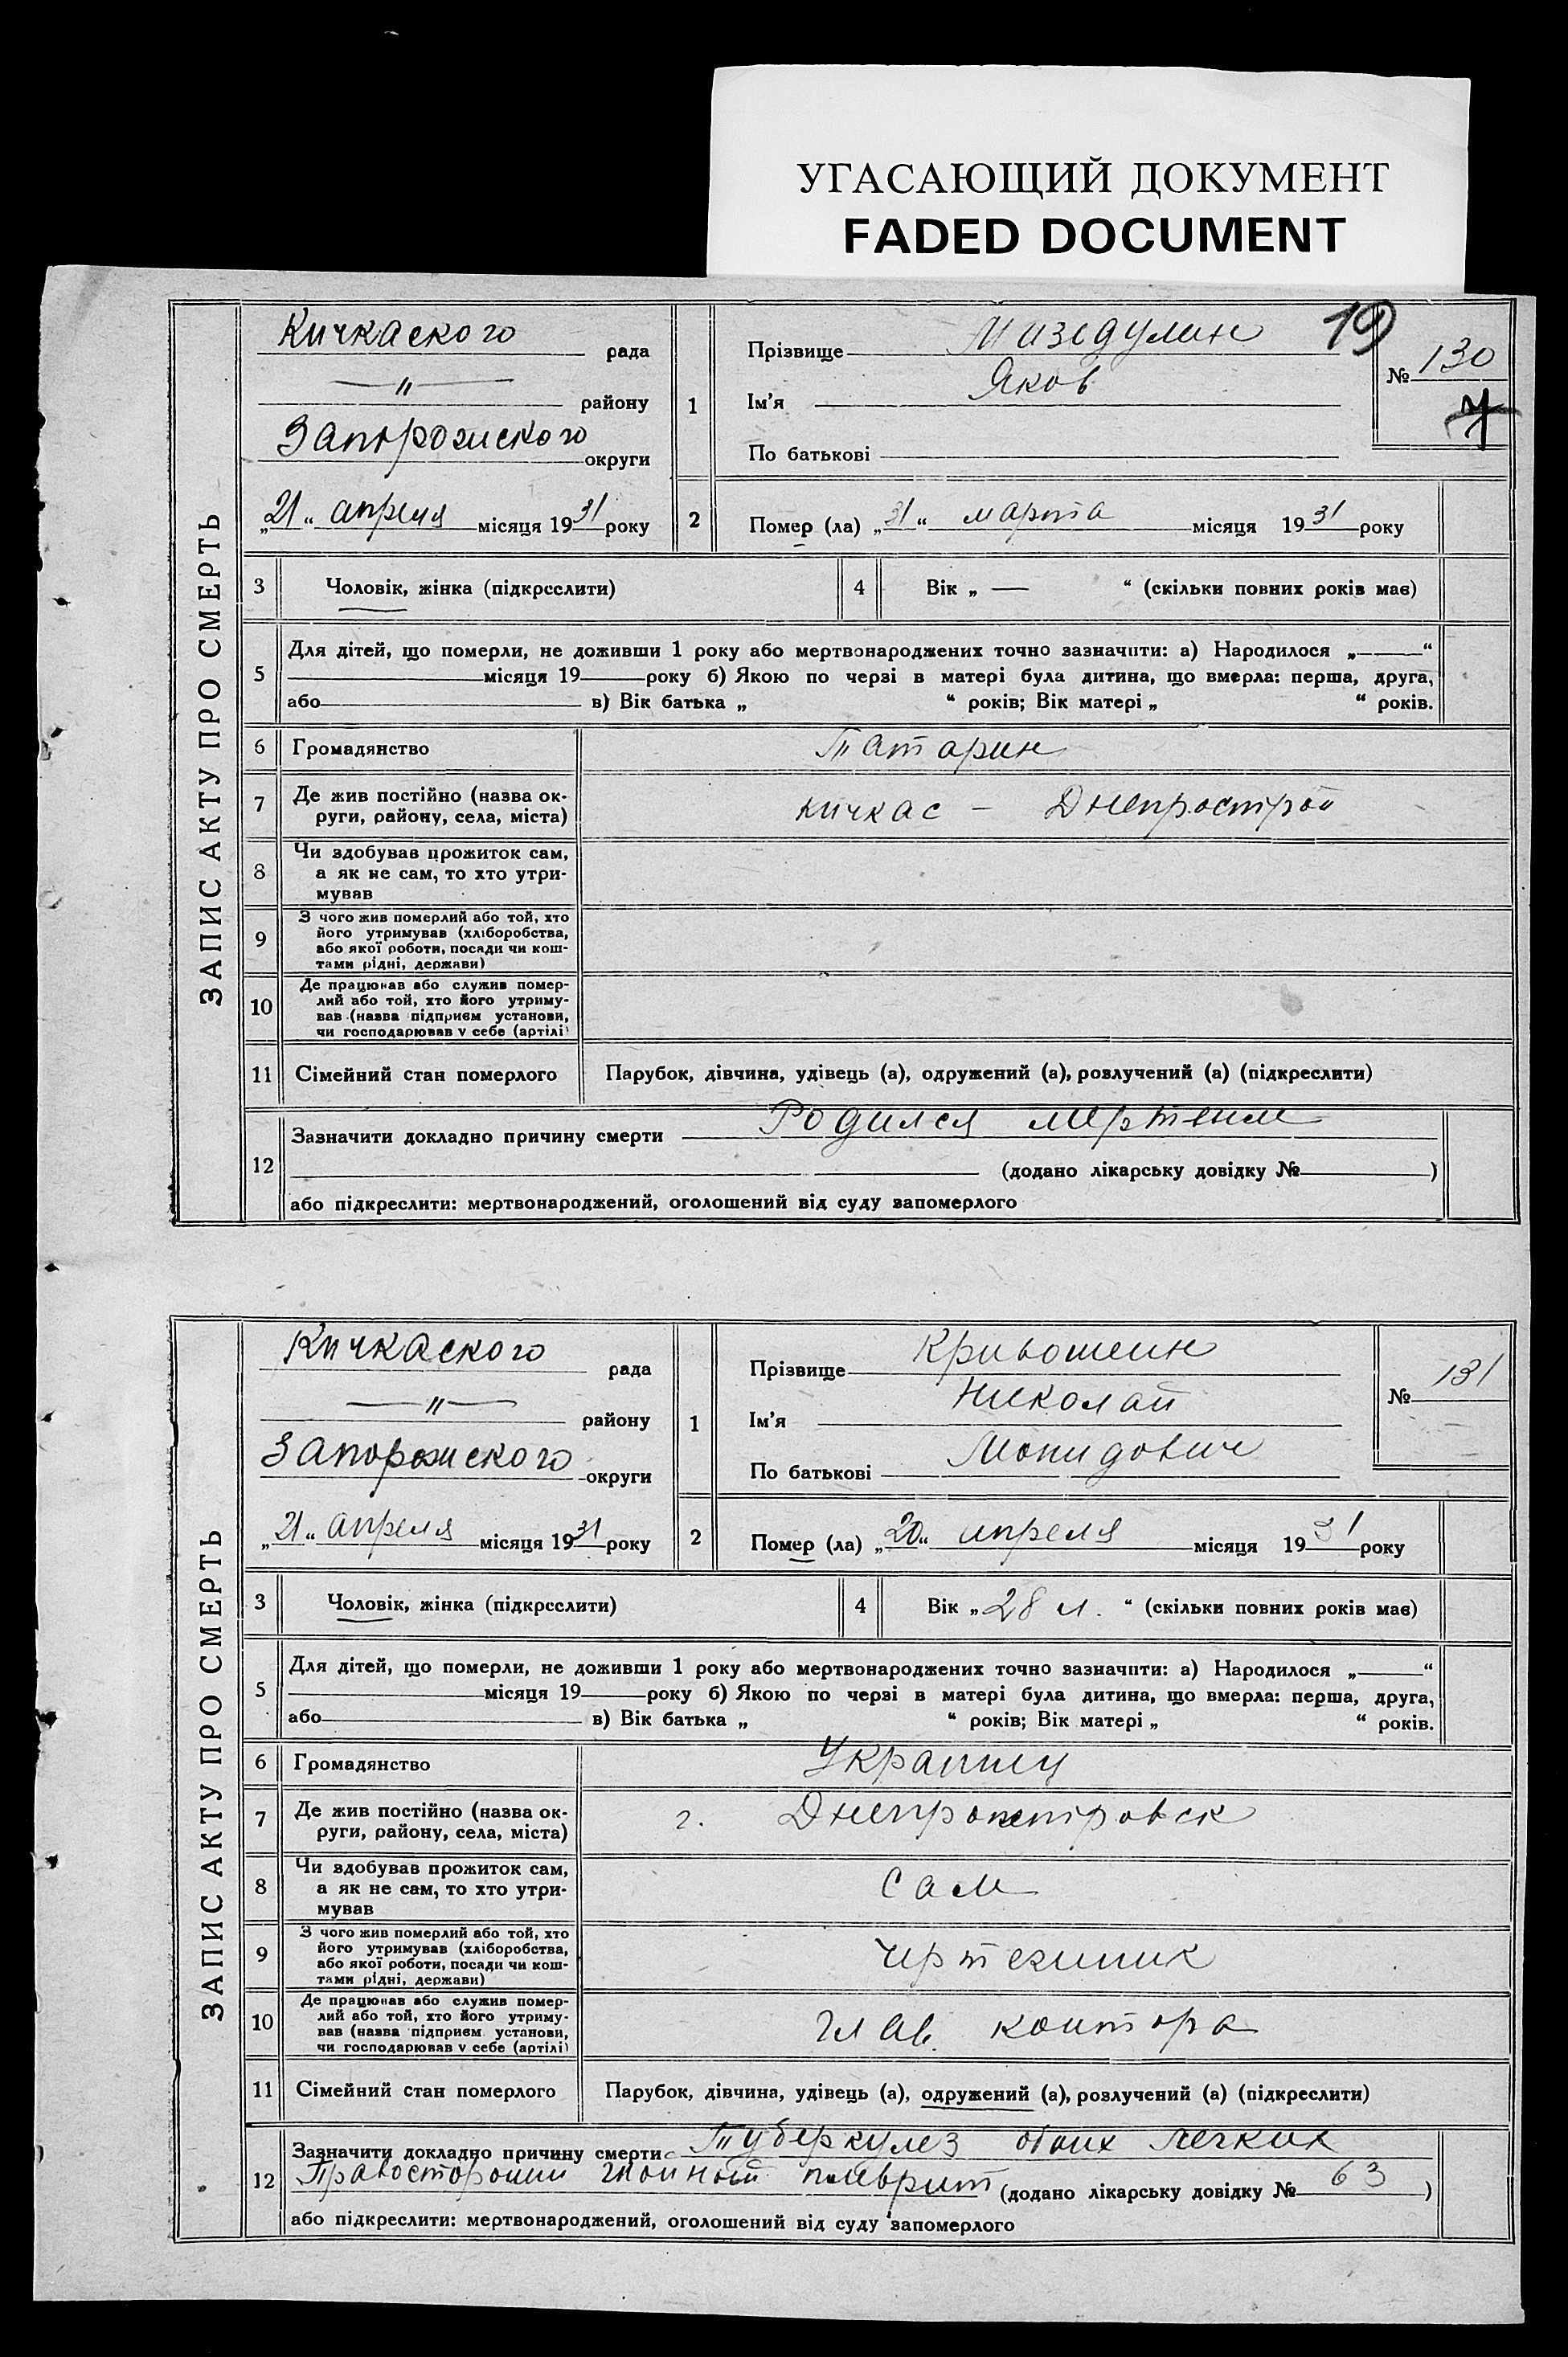 УГАСАЮЩИЙ ДОКУМЕНТ
FADED DOCUMENT
19
ЗАПИС АКТУ ПРО СМЕРТЬ
Кичкаского рада
—"— району
Запорожского округи
„21“ апреля місяця 1931 року
1 Прізвище Мизедулин
Ім'я Яков
По батькові
№ 130
2 Помер (ла) „31“ марта місяця 1931 року
3 Чоловік, жінка (підкреслити)
4 Вік „ — “ (скільки повних років має)
5 Для дітей, що померли, не доживши 1 року або мертвонароджених точно зазначити: а) Народилося „——“
місяця 19 року б) Якою по черзі в матері була дитина, що вмерла: перша, друга,
або в) Вік батька „ “ років; Вік матері „ “ років.
6 Громадянство Татарин
7 Де жив постійно (назва ок-
руги, району, села, міста) кичкас – Днепрострой
8 Чи здобував прожиток сам,
а як не сам, то хто утри-
мував
9 З чого жив померлий або той, хто
його утримував (хліборобства,
або якої роботи, посади чи кош-
тами рідні, держави)
10 Де працював або служив помер-
лий або той, хто його утриму-
вав (назва підприєм установи,
чи господарював у себе (артілі)
11 Сімейний стан померлого Парубок, дівчина, удівець (а), одружений (а), розлучений (а) (підкреслити)
12 Зазначити докладно причину смерти Родился мертвым
(додано лікарську довідку № )
або підкреслити: мертвонароджений, оголошений від суду запомерлого
ЗАПИС АКТУ ПРО СМЕРТЬ
Кичкаского рада
—"— району
Запорожского округи
„21“ апреля місяця 1931 року
1 Прізвище Кривошеин
Ім'я Николай
По батькові
№ 131
2 Помер (ла) „20“ апреля місяця 1931 року
3 Чоловік, жінка (підкреслити)
4 Вік „28 л.“ (скільки повних років має)
5 Для дітей, що померли, не доживши 1 року або мертвонароджених точно зазначити: а) Народилося „——“
місяця 19 року б) Якою по черзі в матері була дитина, що вмерла: перша, друга,
або в) Вік батька „ “ років; Вік матері „ “ років.
6 Громадянство Украинец
7 Де жив постійно (назва ок-
руги, району, села, міста) г. Днепропетровск
8 Чи здобував прожиток сам,
а як не сам, то хто утри-
мував Сам
9 З чого жив померлий або той, хто
його утримував (хліборобства,
або якої роботи, посади чи кош-
тами рідні, держави) чертежник
10 Де працював або служив помер-
лий або той, хто його утриму-
вав (назва підприєм. установи,
чи господарював у себе (артілі) Глав. контора
11 Сімейний стан померлого Парубок, дівчина, удівець (а), одружений (а), розлучений (а) (підкреслити)
12 Зазначити докладно причину смерти Туберкулез обоих легких
Правосторонии гнойный плеврит (додано лікарську довідку № 63)
або підкреслити: мертвонароджений, оголошений від суду запомерлого